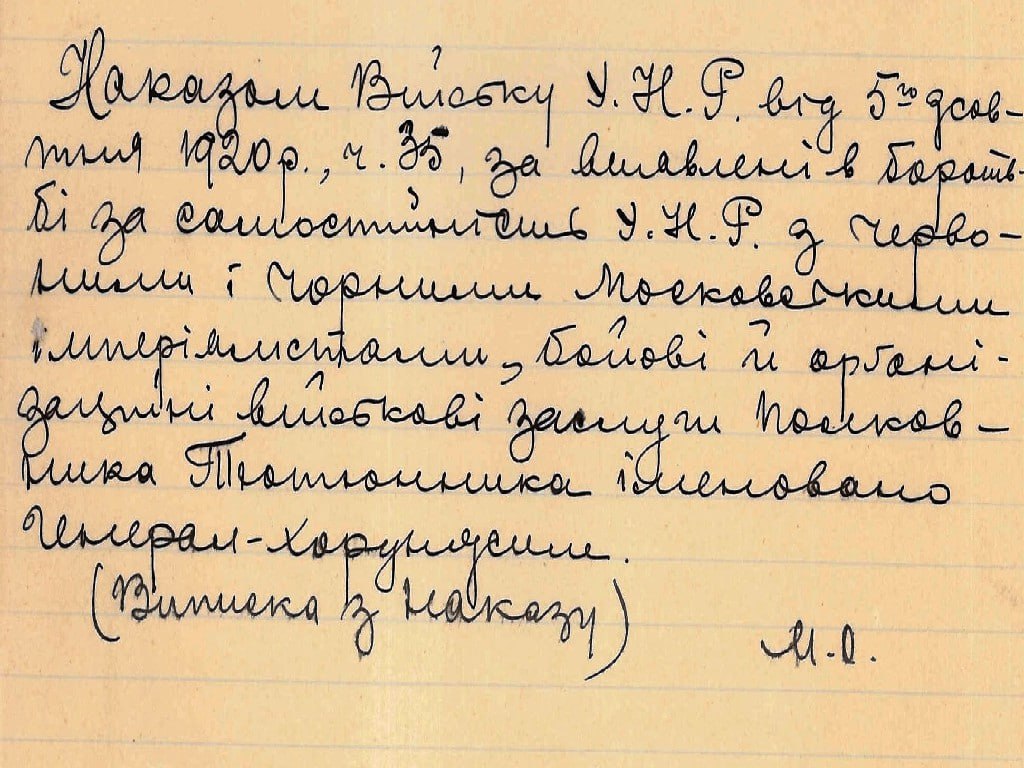 Наказом Війську У.Н.Р. від 5го жов-
тня 1920 р., ч. 35, за виявлені в бороть-
бі за самостійність У.Н.Р. з черво-
ними і чорними московськими
імперіялистами, бойові й органі-
заційні військові заслуги полков-
ника Тютюнника іменовано
Генерал-хорунжим.
(Виписка з наказу)
М.О.